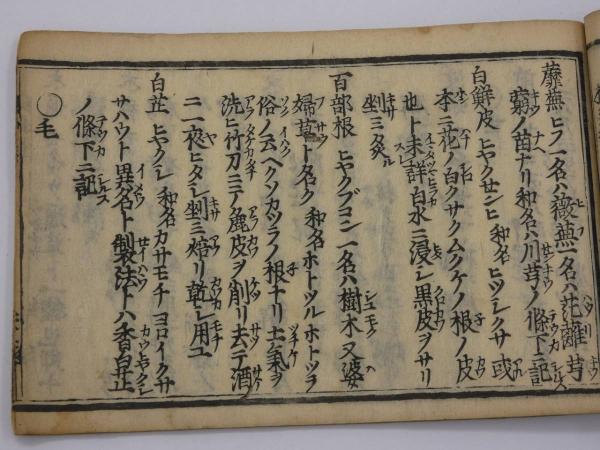 蘼蕪 ヒノ一名ハ薇蕪一名ハ茳蘺芎
藭ノ苗ナリ和名ハ川芎ノ條下ニ記
白鮮皮 ヒヤクセンヒ 和名 ヒツジクサ 或
本ニ花ノ白クサクムクケノ根ノ皮
也ト未詳白水ニ浸シ黒皮ヲサリ
剉ミ久ル
百部根 ヒヤクブコン 一名ハ樹木又婆
婦草ト名ク 和名 ホトツル ホトツラ
俗ノ云ヘクソカツラノ根ナリ土氣ヲ
洗ヒ竹刀ニテ麁皮ヲ削リ去テ酒
ニ一夜ヒタシ剉ミ焙リ乾シ用ユ
白芷 ヒヤクシ 和名 カサモチ ヨロイクサ
サハウト 異名ト製法トハ香白芷
ノ條下ニ記
〇毛